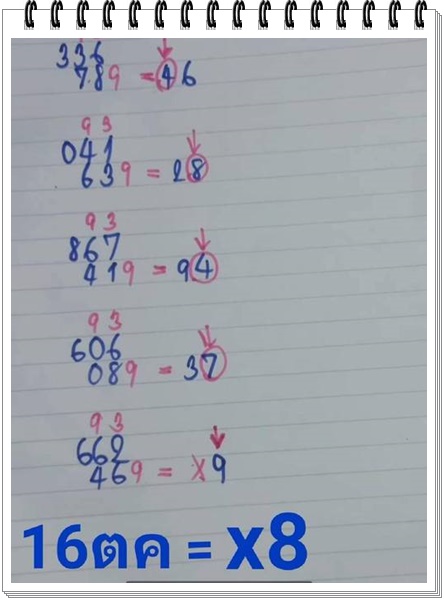 336
789 = 46
9 3
041
639 = 28
9 3
867
419 = 94
9 3
606
089 = 37
9 3
662
469 = x9
16ตค = x8